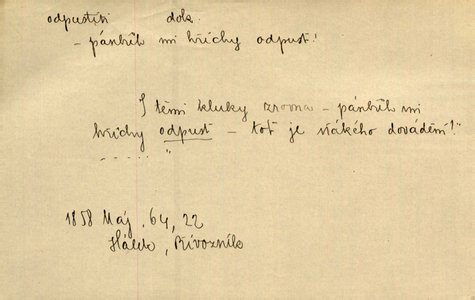 odpustiti dok.
– pánbůh mi hříchy odpust!
S těmi kluky zrovna – pánbůh mi
hříchy odpust – toť je ňákého dovádění!"
– – – – – "
1858 Máj, 64, 22
Hálek, Přívozník